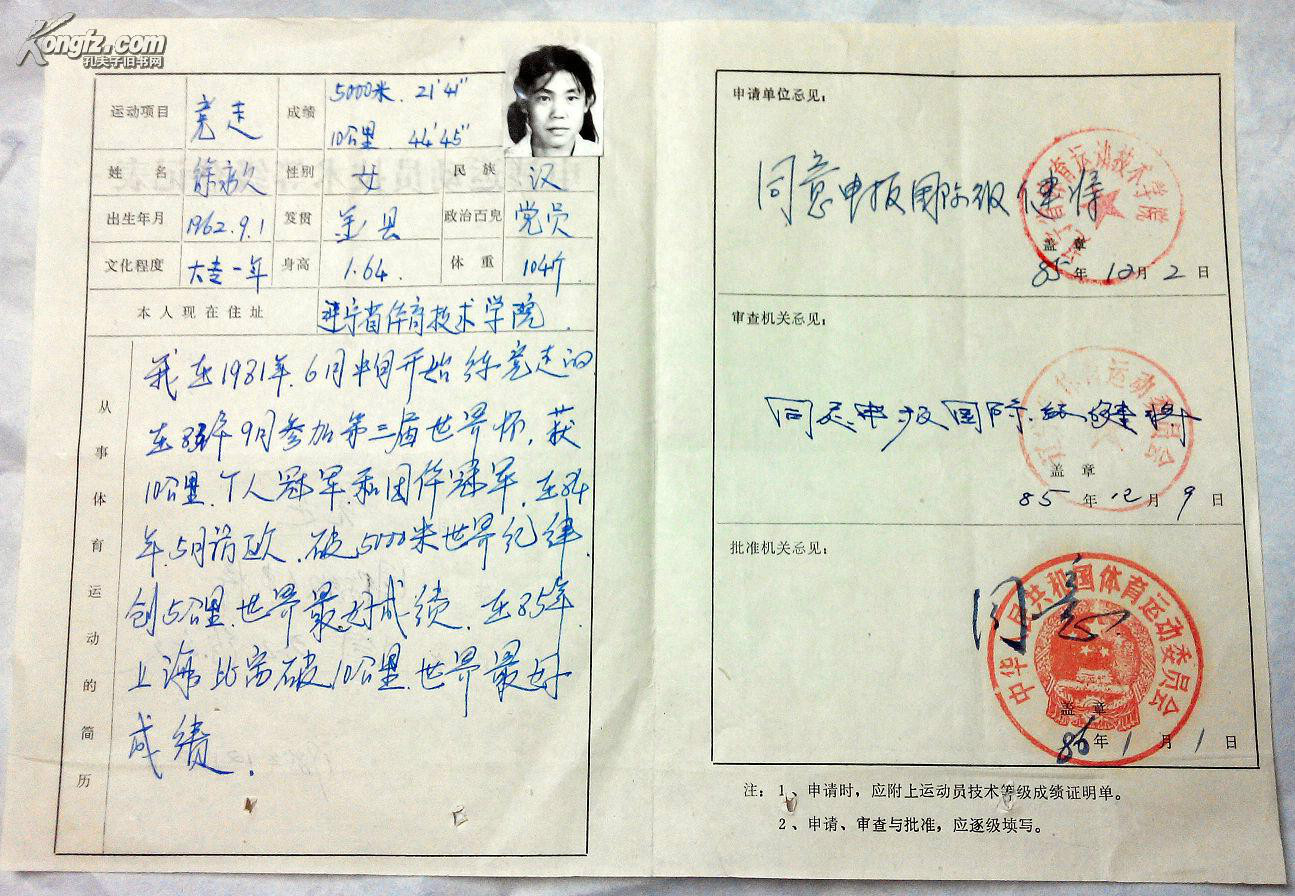 Kongfz.com
孔夫子旧书网
运动项目 竞走 成绩 5000米. 21'41"
10公里. 44'45"
姓名 徐永久 性别 女 民族 汉
出生年月 1962.9.1 笈贯 金县 政治百皃 党员
文化程度 大专一年 身高 1.64. 体重 104斤
本人现在住址 辽宁省体育技术学院.
从事体育运动的简历
我在1981年.6月中旬开始练竞走的
在83年9月参加第三届世界杯.获
10公里.个人冠军.和团体冠军.在84
年.5月访欧.破5000米世界纪律.
创5公里.世界最好成绩.在85年.
上海比赛破10公里.世界最好
成绩.
申请单位忌见:
同意申报国际级健将
省体育运动技术学院
盖章
85年12月2日
审查机关忌见:
同意申报国际级健将
体育运动委员会
盖章
85年12月9日
批准机关忌见:
同意
中华人民共和国体育运动委员会
盖章
86年1月1日
注: 1、申请时,应附上运动员技术等级成绩证明单。
2、申请、审查与批准,应逐级填写。